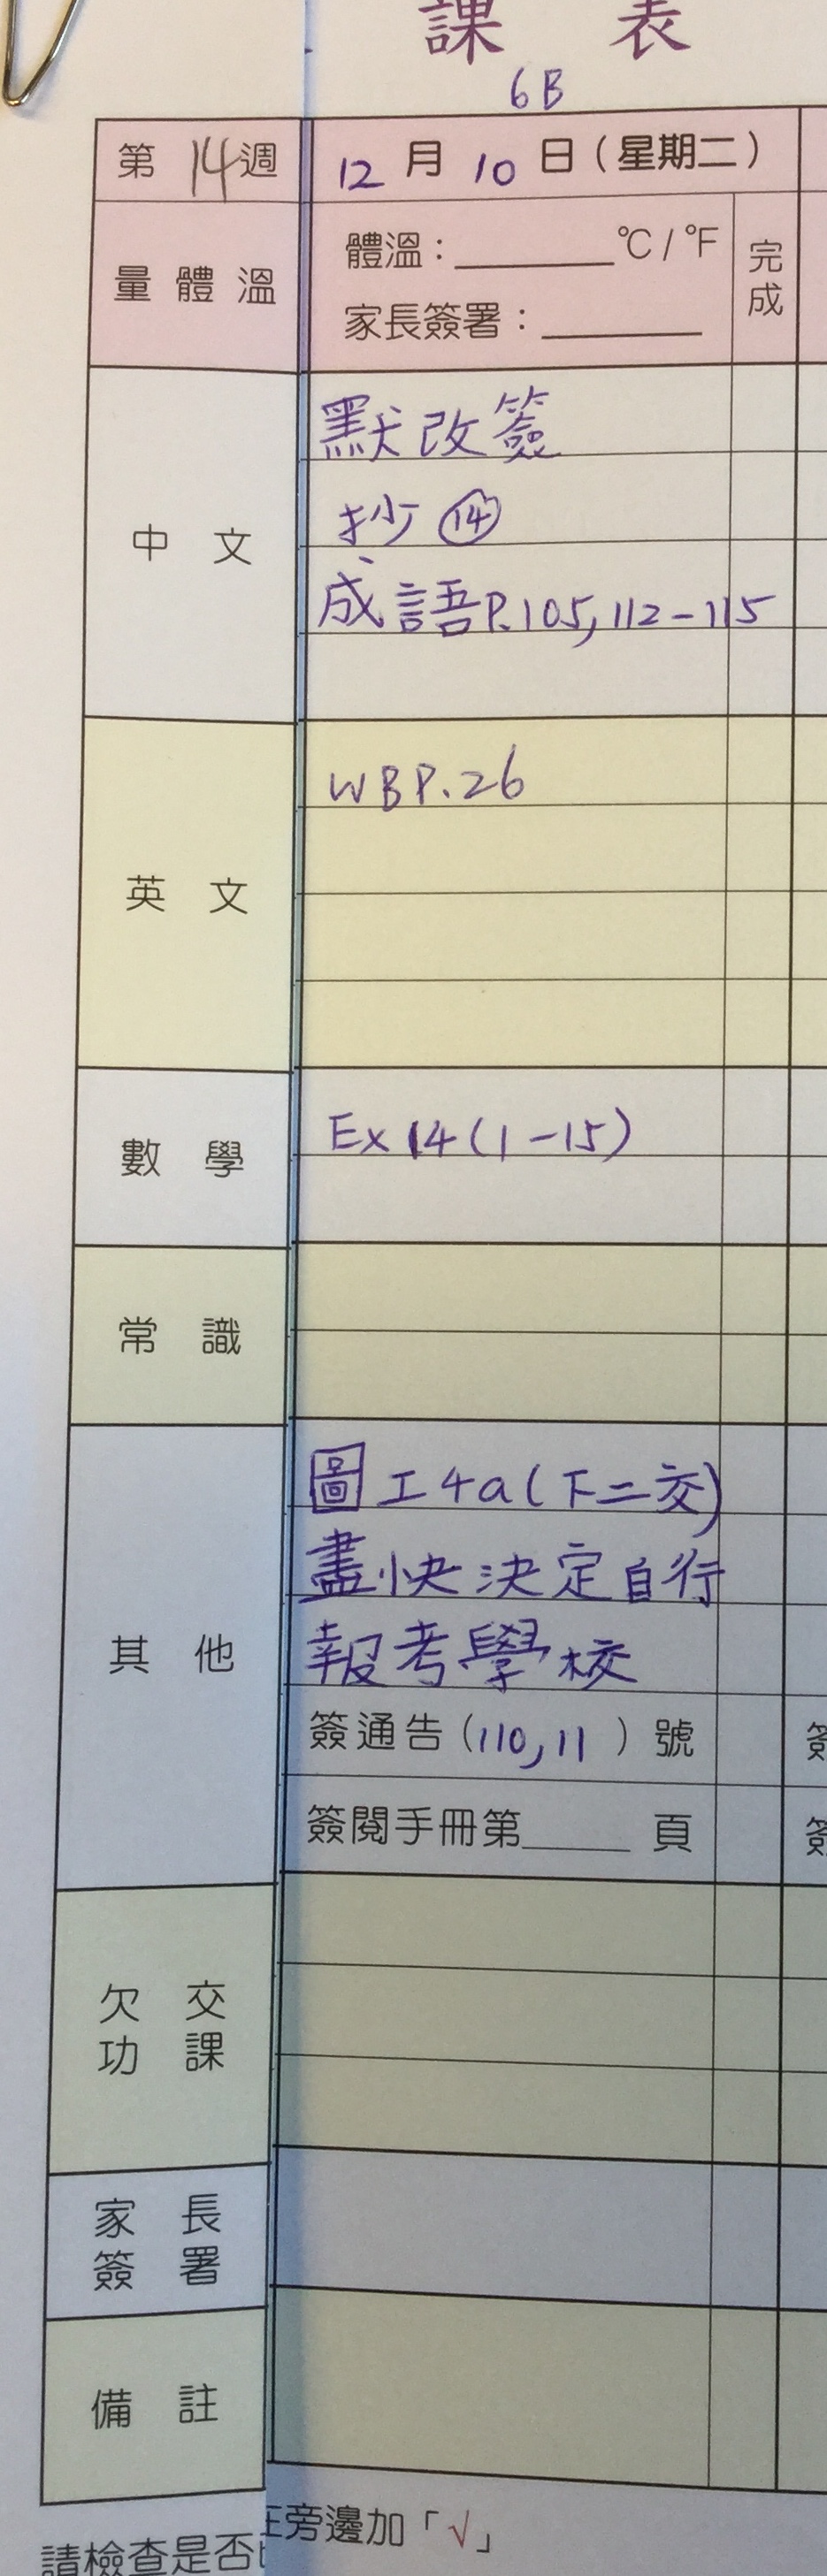 課 表
6B
第 14 週 12 月 10 日(星期二)
量 體 溫
體溫:______℃/℉
家長簽署:______
完成
中 文
默改簽
抄⑭
成語P.105,112-115
英 文
WBP.26
數 學
Ex 14(1-15)
常 識
其 他
圖工4a(下二交)
盡快決定自行
報考學校
簽通告(110,11)號
簽閱手冊第____頁
簽
簽
欠 交
功 課
家 長
簽 署
備 註
旁邊加「√」
請檢查是否